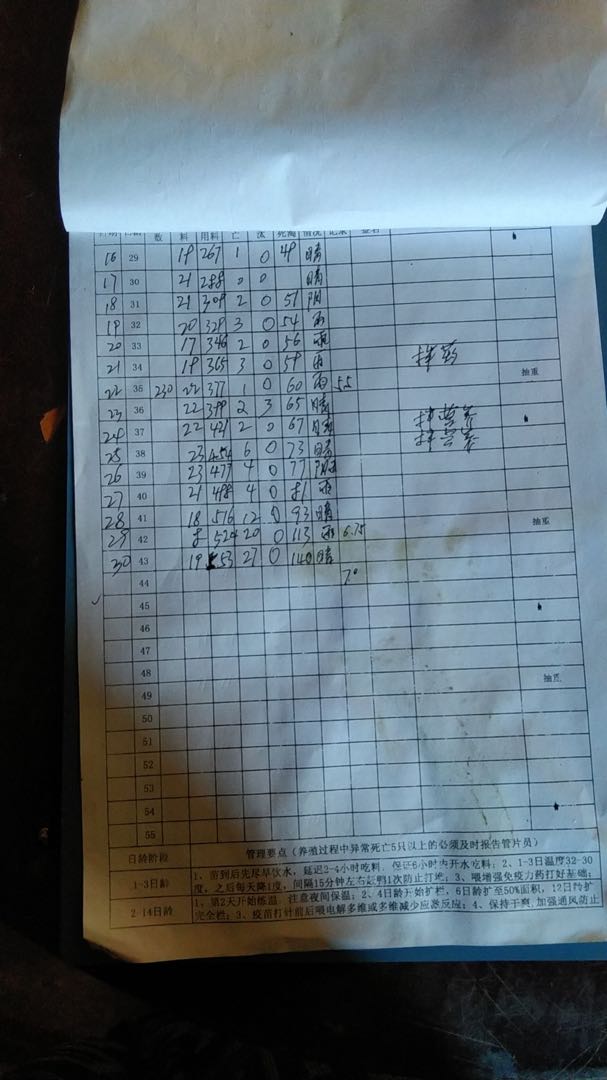 数 料 用料 亡 汰 死淘 情况 记录 签名
16 29 19 267 1 0 49 晴
17 30 21 288 0 0 晴
18 31 21 309 2 0 51 阴
19 32 20 329 3 0 54 雨
20 33 17 346 2 0 56 雨
21 34 19 365 3 0 59 雨
抽重
22 35 230 22 377 1 0 60 雨 55
23 36 22 399 2 3 65 晴
24 37 22 421 2 0 67
25 38 23 454 6 0 73 晴
26 39 23 477 4 0 77
27 40 21 498 4 0 81 雨
28 41 18 516 12 0 93 晴 抽重
29 42 8 524 20 0 113 雨 6.75
30 43 19 53 27 0 140 晴
44 70
45
46
47
48
49 抽重
50
51
52
53
54
55
日龄阶段 管理要点（养殖过程中异常死亡5只以上的必须及时报告管片员）
1-3日龄 1、苗到后先尽早饮水，延迟2-4小时吃料，保证6小时内开水吃料；2、1-3日温度32-30
度，之后每天降1度，间隔15分钟左右赶鸭1次防止打堆；3、喂增强免疫力药打好基础；
2-14日龄 1、第2天开始炼温，注意夜间保温；2、4日龄开始扩栏，6日龄扩至50%面积，12日龄扩
完全栏；3、疫苗打针前后喂电解多维或多维减少应激反应；4、保持干爽，加强通风防止